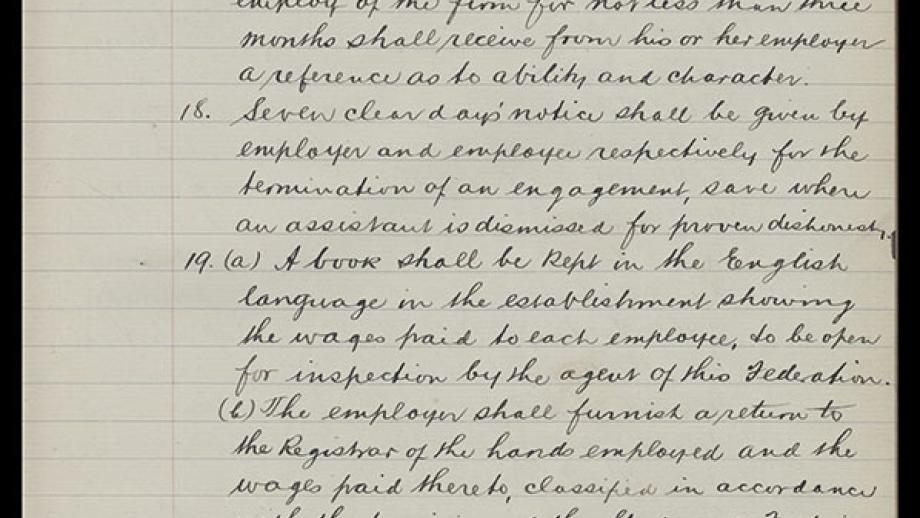 employ of the firm for not less than three
months shall receive from his or her employer
a reference as to ability and character.
18. Seven clear days' notice shall be given by
employer and employee respectively for the
termination of an engagement, save where
an assistant is dismissed for proven dishonesty.
19. (a) A book shall be kept in the English
language in the establishment showing
the wages paid to each employee, to be open
for inspection by the agent of this Federation.
(b) The employer shall furnish a return to
the Registrar of the hands employed and the
wages paid thereto, classified in accordance